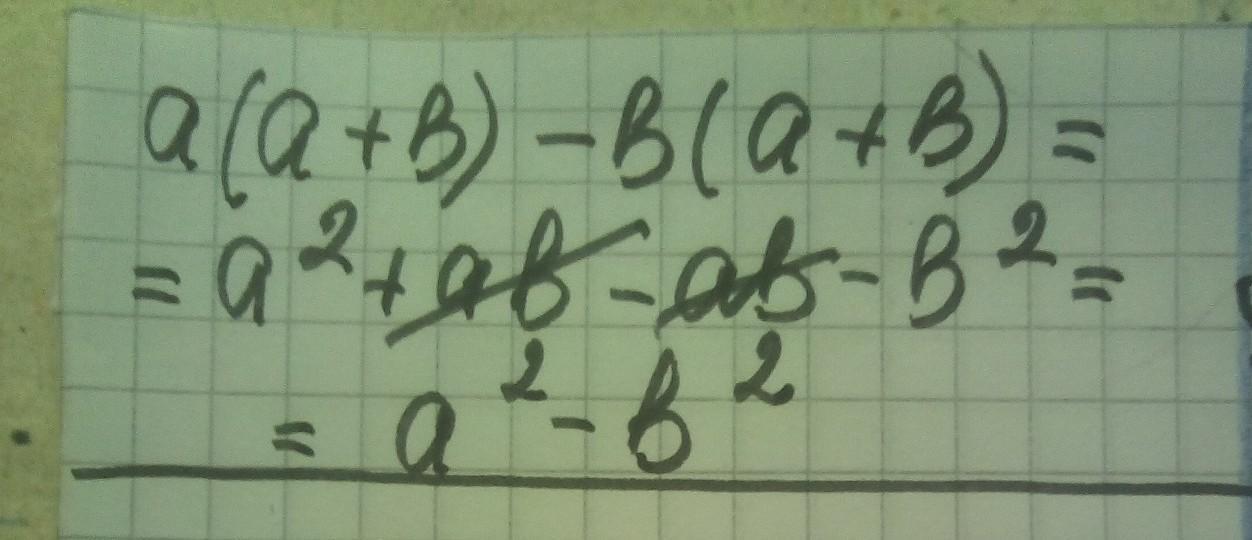 a(a+b)-b(a+b)=
=a²+ab-ab-b²=
=a²-b²